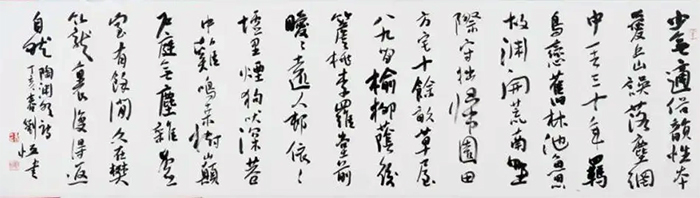 少無適俗韻性本
愛丘山誤落塵網
中一去三十年羈
鳥戀舊林池魚
故淵開荒南野
際守拙歸園田
方宅十餘畝草屋
八九間榆柳蔭後
簷桃李羅堂前
曖曖遠人邨依依
墟里煙狗吠深巷
中雞鳴桑樹巔
戶庭無塵雜虛
室有餘閒久在樊
籠裏復得返
自然 陶淵明詩
丁亥春劉恆書